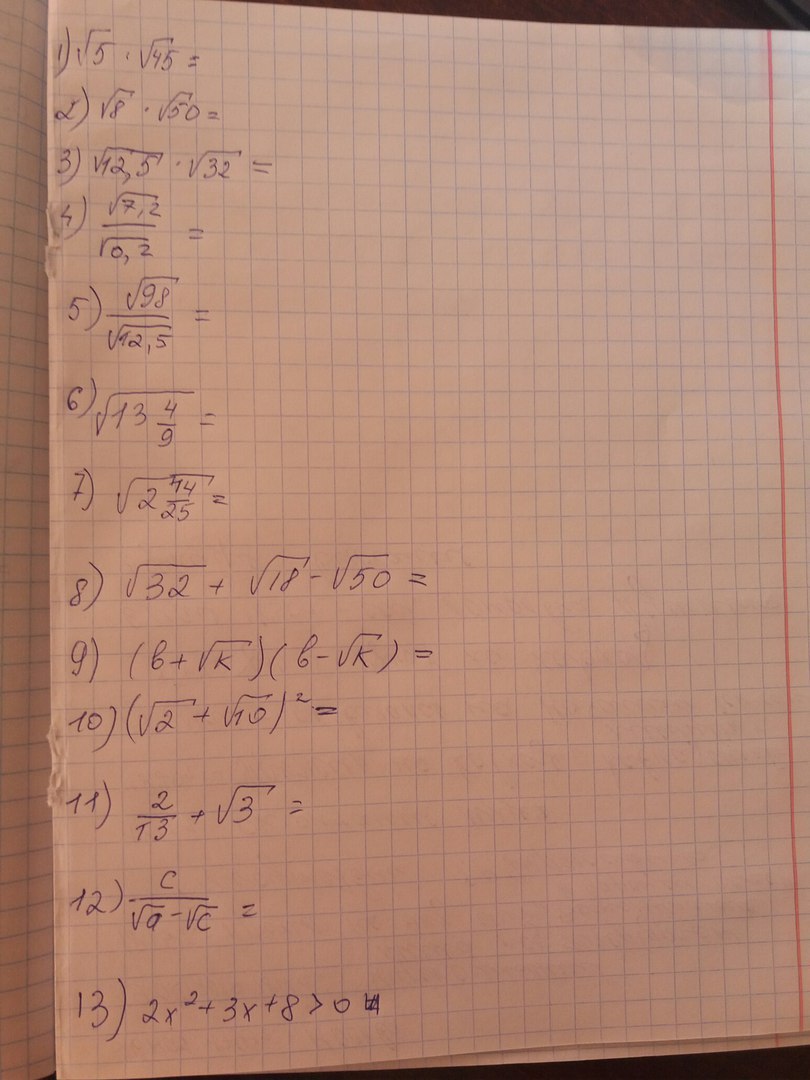 1) √5 · √45 =
2) √8 · √50 =
3) √12,5 · √32 =
4) √7,2 / √0,2 =
5) √98 / √12,5 =
6) √(13 4/9) =
7) √(2 44/25) =
8) √32 + √18 - √50 =
9) (в + √к)(в - √к) =
10) (√2 + √10)² =
11) 2/13 + √3 =
12) c / (√a - √c) =
13) 2x² + 3x + 8 > 0